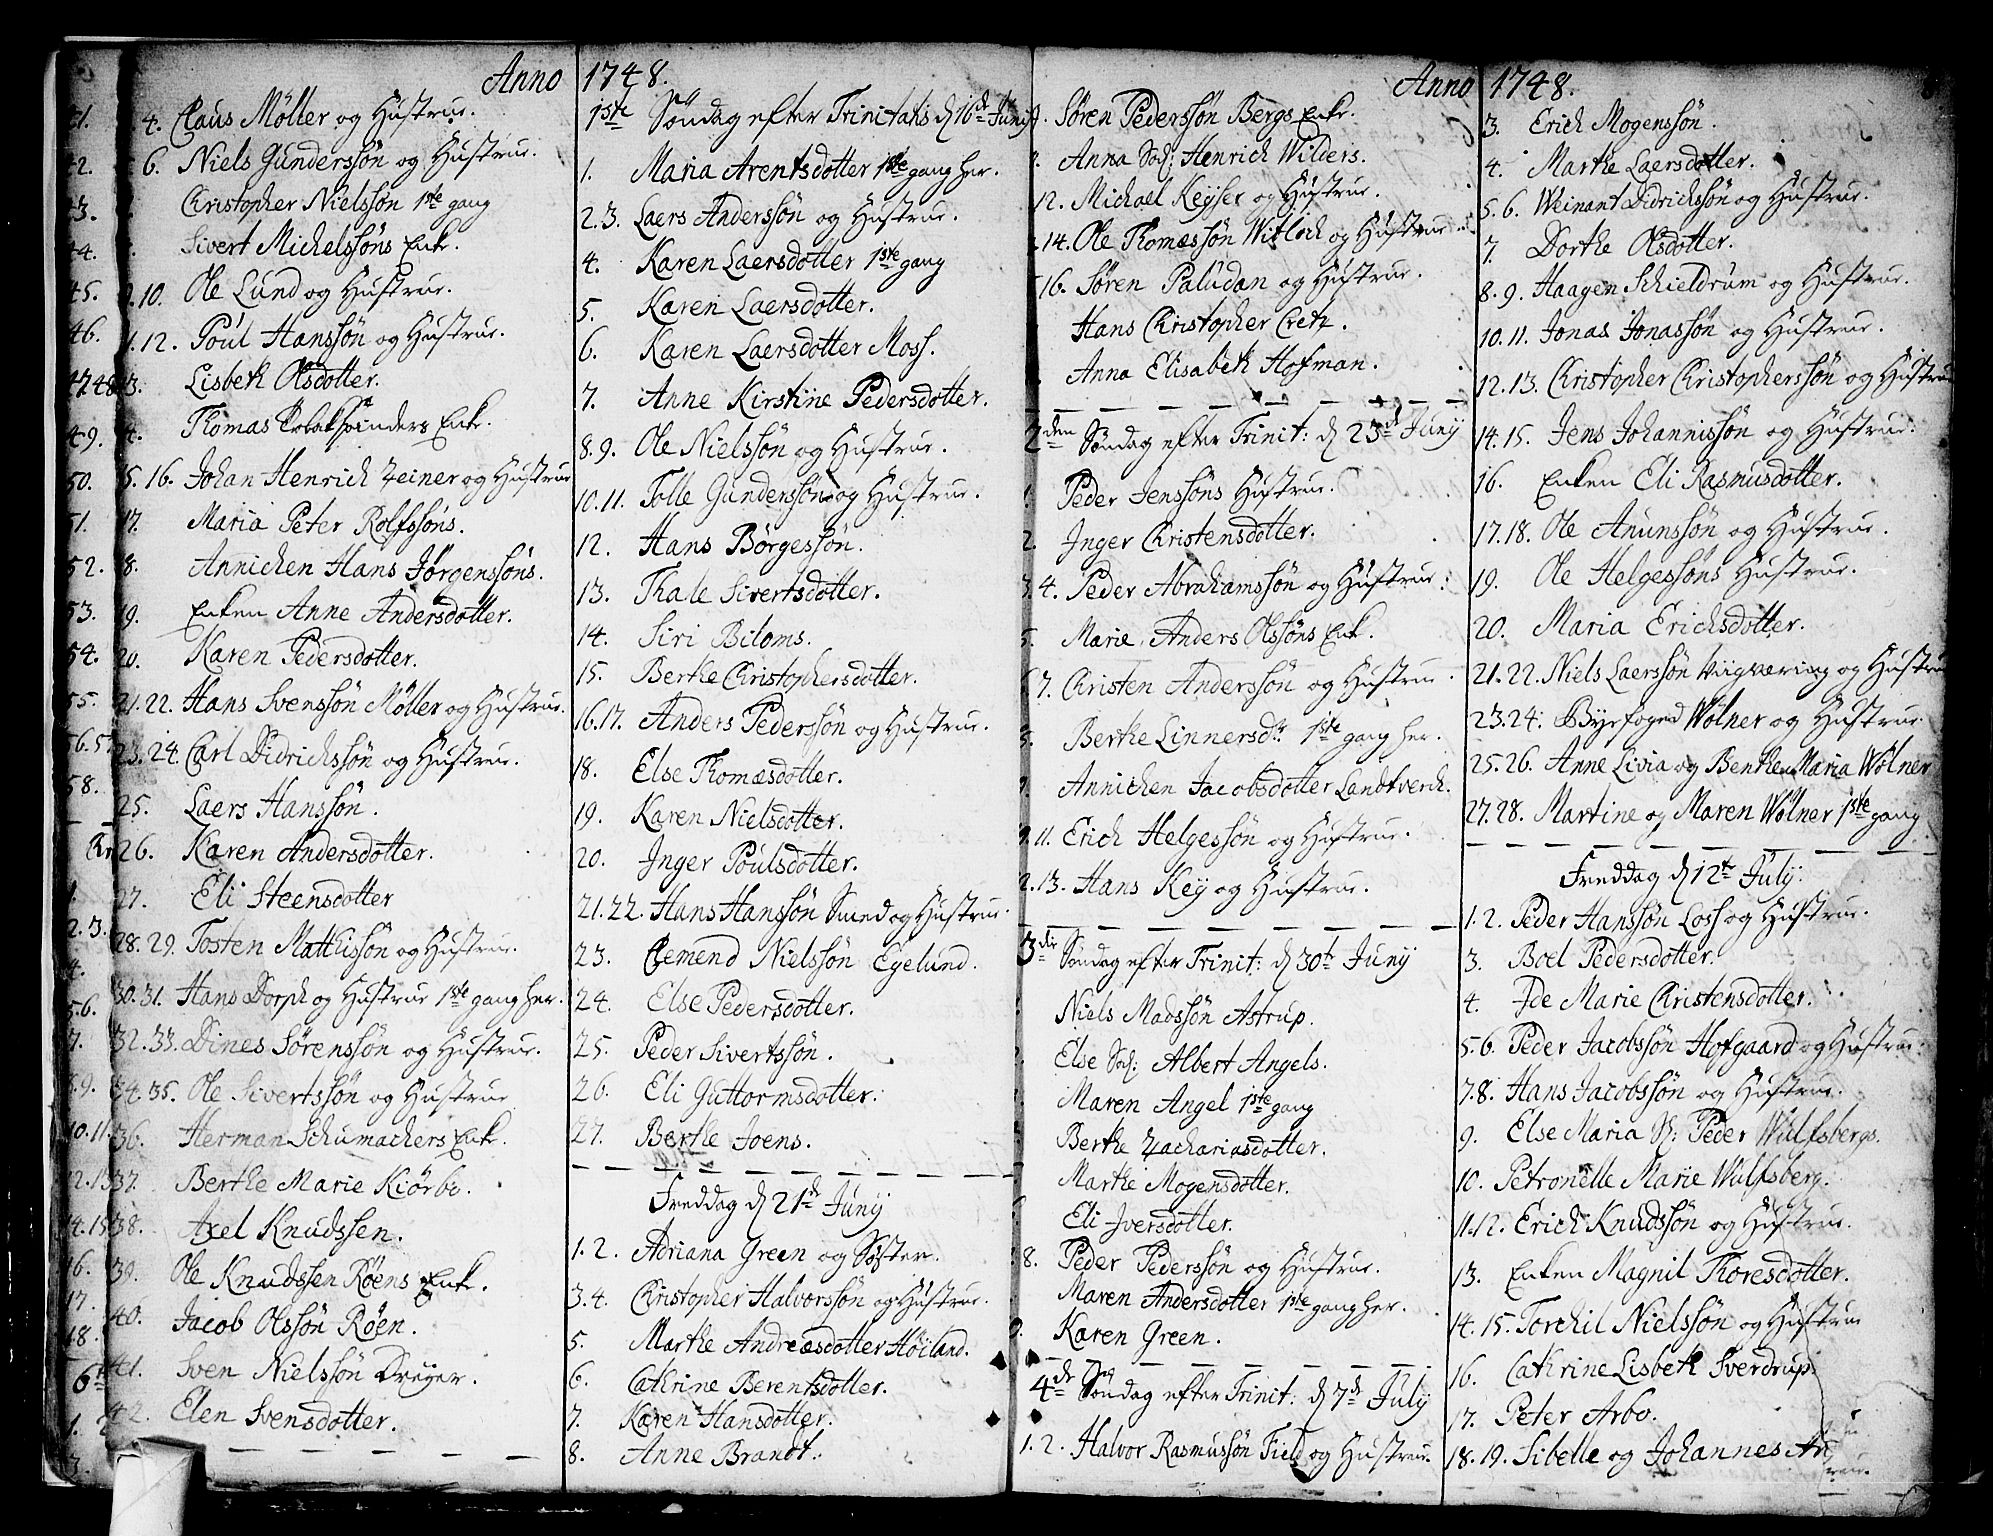 Anno 1748.
4. Claus Möller og Hustrue.
6. Niels Gunderssön og Hustrue.
Christopher Nielssön 1ste gang
Sivert Michelssöns Enke.
10. Ole Lund og Hustrue.
12. Poul Hanssön og Hustrue.
Lisbeth Olsdotter.
Thomas Enke.
16. Johan Henrich Zeiner og Hustrue
17. Maria Peter Rolfssöns.
Annichen Hans Jörgenssöns.
19. Enken Anne Andersdotter.
20. Karen Pedersdotter.
21. 22. Hans Svenssön Möller og Hustrue.
23. 24. Carl Didrichssön og Hustrue.
25. Laers Hanssön.
26. Karen Andersdotter.
27. Eli Steensdotter
28. 29. Tosten Matthissön og Hustrue.
30. 31. Hans Dorph og Hustrue 1ste gang her.
32. 33. Dines Sörenssön og Hustrue.
34. 35. Ole Sivertssön og Hustrue
36. Herman Schumachers Enke.
37. Berthe Marie Kiörbo.
38. Axel Knudssen.
39. Ole Knudssen Röens Enke.
40. Jacob Olssön Röen.
41. Sven Nielssön Dreyer.
42. Elen Svensdotter.
1ste Söndag efter Trinitatis d 16de Junij
1. Maria Arentsdotter 1ste gang her.
2. 3. Laers Anderssön og Hustrue.
4. Karen Laersdotter 1ste gang
5. Karen Laersdotter.
6. Karen Laersdotter Moss.
7. Anne Kirstine Pedersdotter.
8. 9. Ole Nielssön og Hustrue.
10. 11. Tolle Gunderssön og Hustrue.
12. Hans Börgessön.
13. Thale Sivertsdotter.
14. Siri Biloms.
15. Berthe Christophersdotter.
16. 17. Anders Pederssön og Hustrue.
18. Else Thomæsdotter.
19. Karen Nielsdotter.
20. Inger Poulsdotter.
21. 22. Hans Hanssön Smed og Hustrue.
23. Clemend Nielssön Egelund.
24. Else Pedersdotter.
25. Peder Sivertssön.
26. Eli Guttormsdotter.
27. Berthe Joens.
Freddag d 21de Junij
1. 2. Adriana Green og Söster.
3. 4. Christopher Halvorssön og Hustrue.
5. Marthe Andreasdotter Höiland.
6. Cathrine Berentsdotter.
7. Karen Hansdotter.
8. Anne Brandt.
Anno 1748.
Sören Pederssön Bergs Enke.
Anna Sal: Henrich Wilders.
12. Michael Keyser og Hustrue.
14. Ole Thomæssön Witloch og Hustrue
16. Sören Paludan og Hustrue.
Hans Christopher Cretz.
Anna Elisabeth Hofman.
2den Söndag efter Trinit: d 23de Junij
1. Peder Jenssöns Hustrue.
2. Inger Christensdotter.
3. 4. Peder Abrahamssön og Hustrue.
5. Marie Anders Olssöns Enke.
7. Christen Anderssön og Hustrue.
Berthe Linnersdr 1ste gang her.
Annichen Jacobsdotter Landtverch.
11. Erich Helgessön og Hustrue.
13. Hans Key og Hustrue.
3die Söndag efter Trinit: d 30te Junij
Niels Madssön Astrup.
Else Sal: Albert Angels.
Maren Angel 1ste gang
Berthe Zachariasdotter.
Marthe Mogensdotter.
Eli Iversdotter.
8. Peder Pederssön og Hustrue.
Maren Andersdotter 1ste gang her.
Karen Green.
4de Söndag efter Trinit: d 7de July
1. 2. Halvor Rasmussön Field og Hustrue.
3. Erich Mogenssön.
4. Marthe Laersdotter.
5. 6. Weinant Didrichssön og Hustrue.
7. Dorthe Olsdotter.
8. 9. Haagen Schieldrum og Hustrue.
10. 11. Jonas Jonassön og Hustrue.
12. 13. Christopher Christopherssön og Hustrue
14. 15. Jens Johannissön og Hustrue.
16. Enken Eli Rasmusdotter.
17. 18. Ole Anunssön og Hustrue.
19. Ole Helgessöns Hustrue.
20. Maria Erichsdotter.
21. 22. Niels Laerssön Viigværing og Hustrue
23. 24. Byefoged Wölner og Hustrue
25. 26. Anne Livia og Benthe Maria Wölner
27. 28. Martine og Maren Wölner 1ste gang
Freddag d 12te July.
1. 2. Peder Hanssön Loss og Hustrue.
3. Boel Pedersdotter.
4. Ide Marie Christensdotter.
5. 6. Peder Jacobssön Hofgaard og Hustrue.
7. 8. Hans Jacobssön og Hustrue.
9. Else Maria Sl: Peder Wulfsbergs.
10. Petronelle Marie Wulfsberg.
11. 12. Erich Knudssön og Hustrue.
13. Enken Magnil Thoresdotter.
14. 15. Torchil Nielssön og Hustrue
16. Cathrine Lisbeth Sverdrup.
17. Peter Arbo.
18. 19. Sibelle og Johannes